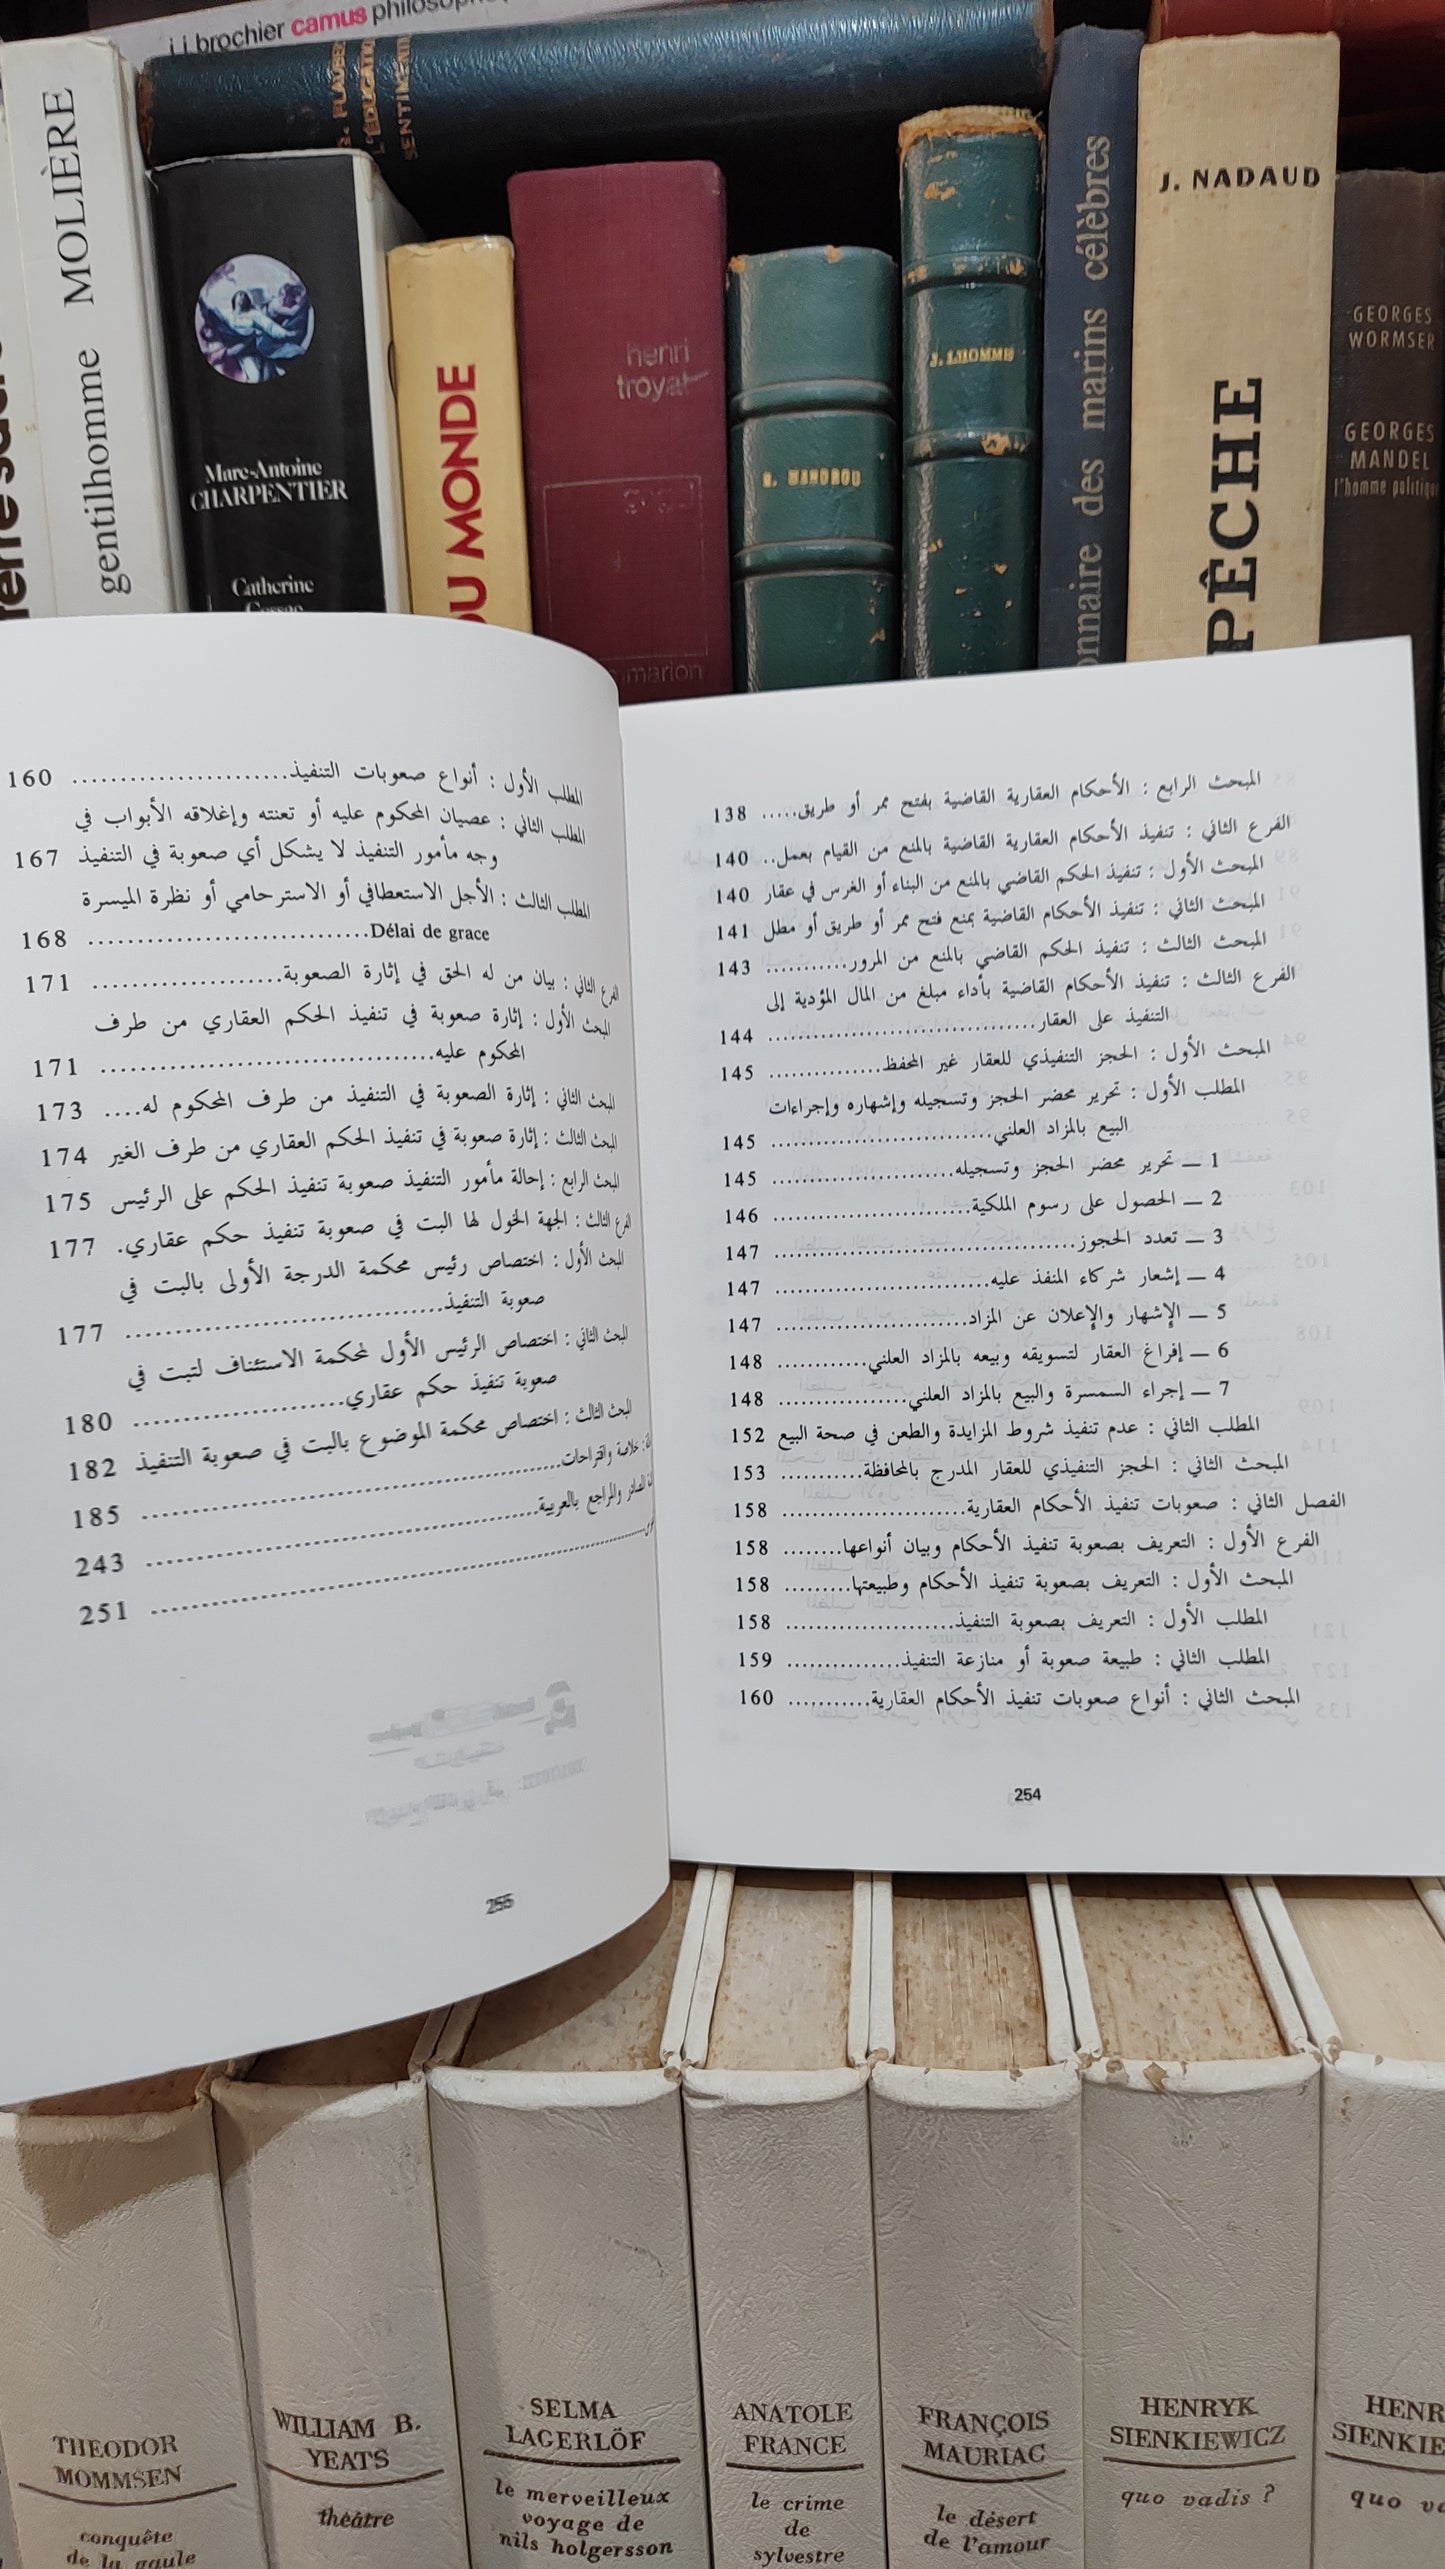 j.j.brochier camus
G. FLAUBE
L'ÉDUCATIO
SENTIMENT
MOLIÈRE
gentilhomme
Marc-Antoine
CHARPENTIER
Catherine
DU MONDE
henri
troyat
R. MANDROU
J. LHOMME
onnaire des marins célèbres
J. NADAUD
PÊCHE
GEORGES
WORMSER
GEORGES
MANDEL
l'homme politique
المبحث الرابع : الأحكام العقارية القاضية بفتح ممر أو طريق..... 138
الفرع الثاني : تنفيذ الأحكام العقارية القاضية بالمنع من القيام بعمل.. 140
المبحث الأول : تنفيذ الحكم القاضي بالمنع من البناء أو الغرس في عقار 140
المبحث الثاني : تنفيذ الأحكام القاضية بمنع فتح ممر أو طريق أو مطل 141
المبحث الثالث : تنفيذ الحكم القاضي بالمنع من المرور........... 143
الفرع الثالث : تنفيذ الأحكام القاضية بأداء مبلغ من المال المؤدية إلى
التنفيذ على العقار.................................. 144
المبحث الأول : الحجز التنفيذي للعقار غير المحفظ.............. 145
المطلب الأول : تحرير محضر الحجز وتسجيله وإشهاره وإجراءات
البيع بالمزاد العلني............................ 145
1 — تحرير محضر الحجز وتسجيله....................... 145
2 — الحصول على رسوم الملكية......................... 146
3 — تعدد الحجوز...................................... 147
4 — إشعار شركاء المنفذ عليه........................... 147
5 — الإشهار والإعلان عن المزاد........................ 147
6 — إفراغ العقار لتسويقه وبيعه بالمزاد العلني............ 148
7 — إجراء السمسرة والبيع بالمزاد العلني................. 148
المطلب الثاني : عدم تنفيذ شروط المزايدة والطعن في صحة البيع 152
المبحث الثاني : الحجز التنفيذي للعقار المدرج بالمحافظة........... 153
الفصل الثاني : صعوبات تنفيذ الأحكام العقارية....................... 158
الفرع الأول : التعريف بصعوبة تنفيذ الأحكام وبيان أنواعها........ 158
المبحث الأول : التعريف بصعوبة تنفيذ الأحكام وطبيعتها......... 158
المطلب الأول : التعريف بصعوبة التنفيذ..................... 158
المطلب الثاني : طبيعة صعوبة أو منازعة التنفيذ............... 159
المبحث الثاني : أنواع صعوبات تنفيذ الأحكام العقارية........... 160
254
المطلب الأول : أنواع صعوبات التنفيذ....................... 160
المطلب الثاني : عصيان المحكوم عليه أو تعنته وإغلاقه الأبواب في
وجه مأمور التنفيذ لا يشكل أي صعوبة في التنفيذ 167
المطلب الثالث : الأجل الاستعطافي أو الاسترحامي أو نظرة الميسرة
Délai de grace.............................. 168
الفرع الثاني : بيان من له الحق في إثارة الصعوبة.................... 171
المبحث الأول : إثارة صعوبة في تنفيذ الحكم العقاري من طرف
المحكوم عليه................................... 171
المبحث الثاني : إثارة الصعوبة في التنفيذ من طرف المحكوم له.... 173
المبحث الثالث : إثارة صعوبة في تنفيذ الحكم العقاري من طرف الغير 174
المبحث الرابع : إحالة مأمور التنفيذ صعوبة تنفيذ الحكم على الرئيس 175
الفرع الثالث : الجهة المخول لها البت في صعوبة تنفيذ حكم عقاري. 177
المبحث الأول : اختصاص رئيس محكمة الدرجة الأولى بالبت في
صعوبة التنفيذ................................. 177
المبحث الثاني : اختصاص الرئيس الأول لمحكمة الاستئناف لتبت في
صعوبة تنفيذ حكم عقاري...................... 180
المبحث الثالث : اختصاص محكمة الموضوع بالبت في صعوبة التنفيذ 182
خلاصة واقتراحات............................................ 185
المصادر والمراجع بالعربية......................................... 243
251
255
THEODOR
MOMMSEN
conquête
de la gaule
WILLIAM B.
YEATS
théâtre
SELMA
LAGERLÖF
le merveilleux
voyage de
nils holgersson
ANATOLE
FRANCE
le crime
de
sylvestre
FRANÇOIS
MAURIAC
le désert
de l'amour
HENRYK
SIENKIEWICZ
quo vadis ?
HENR
SIENKIE
quo va